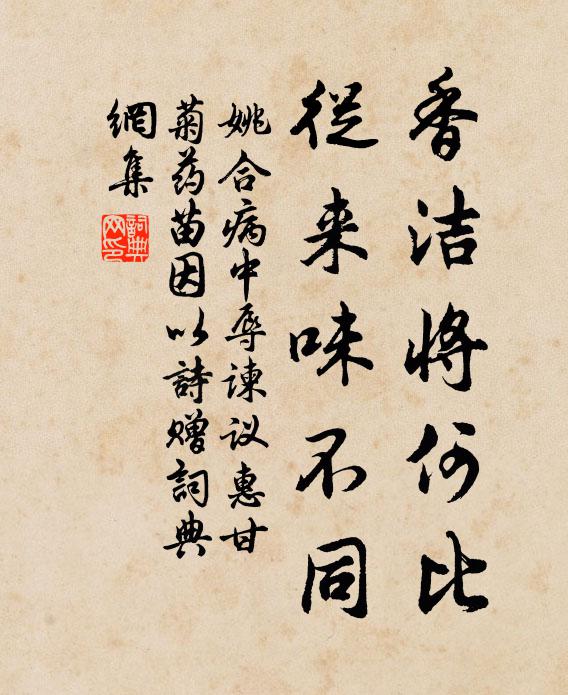 香洁将何比
從来味不同
姚合病中辱谏议惠甘
菊药苗因以詩赠詞典
網集
詞典网印